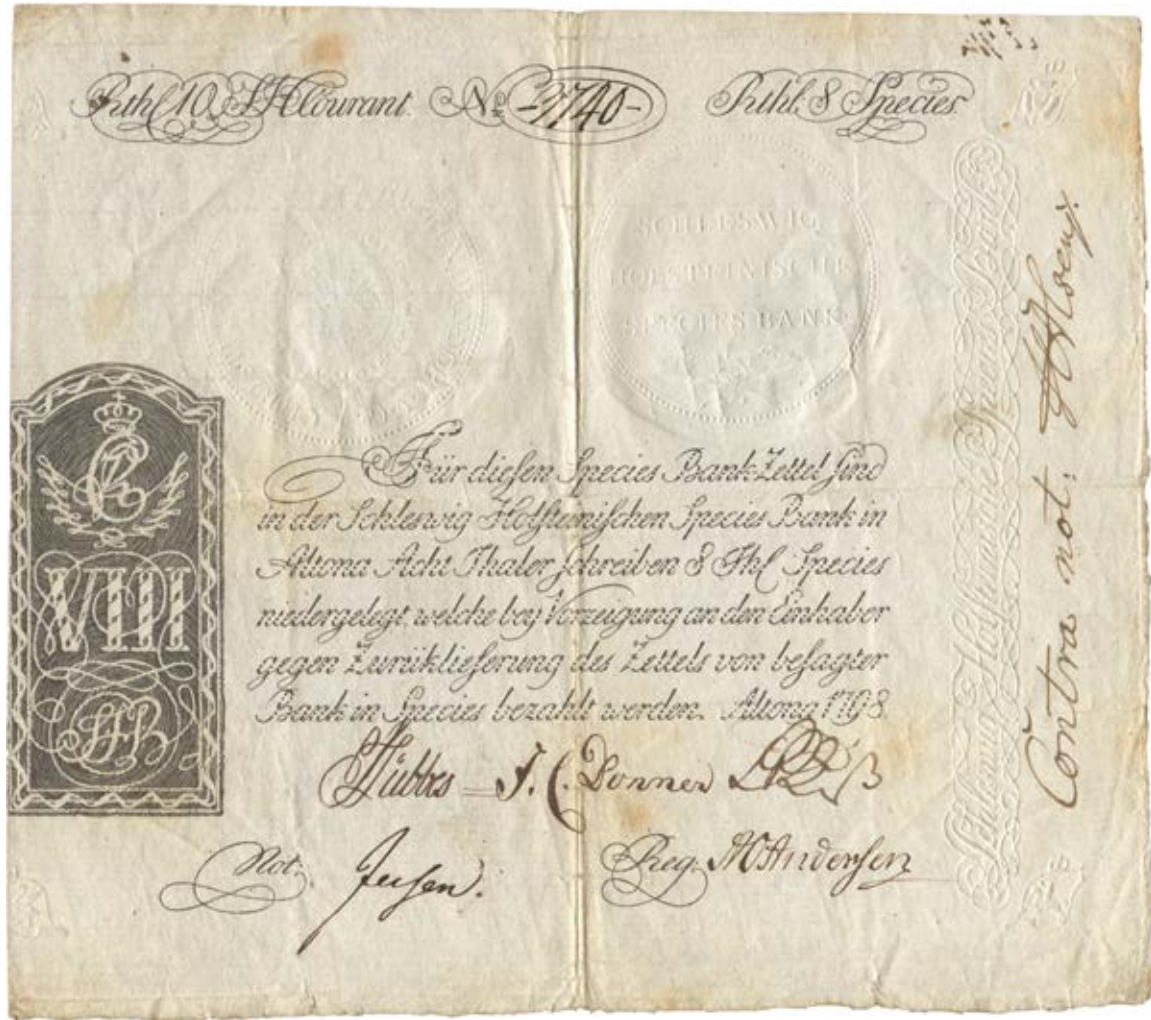 Rthl 10 S H Courant. No -7740- Rthl. 8 Species
SCHLESWIG
HOLSTEINISCHE
SPECIES BANK
Für dieſen Species Bank Zettel ſind
in der Schleswig Holſteiniſchen Species Bank in
Altona Acht Thaler ſchreiben 8 Thl Species
niedergelegt, welche bey Vorzeigung an den Einhaber
gegen Zurükliferung des Zettels von beſagter
Bank in Species bezahlt werden. Altona 1798
VIII
SHB
Lübbes J. C. Donner
Not: Jensen.
Reg. Anderſen
Schleswig Holſteiniſche Species Bank
Contra not: